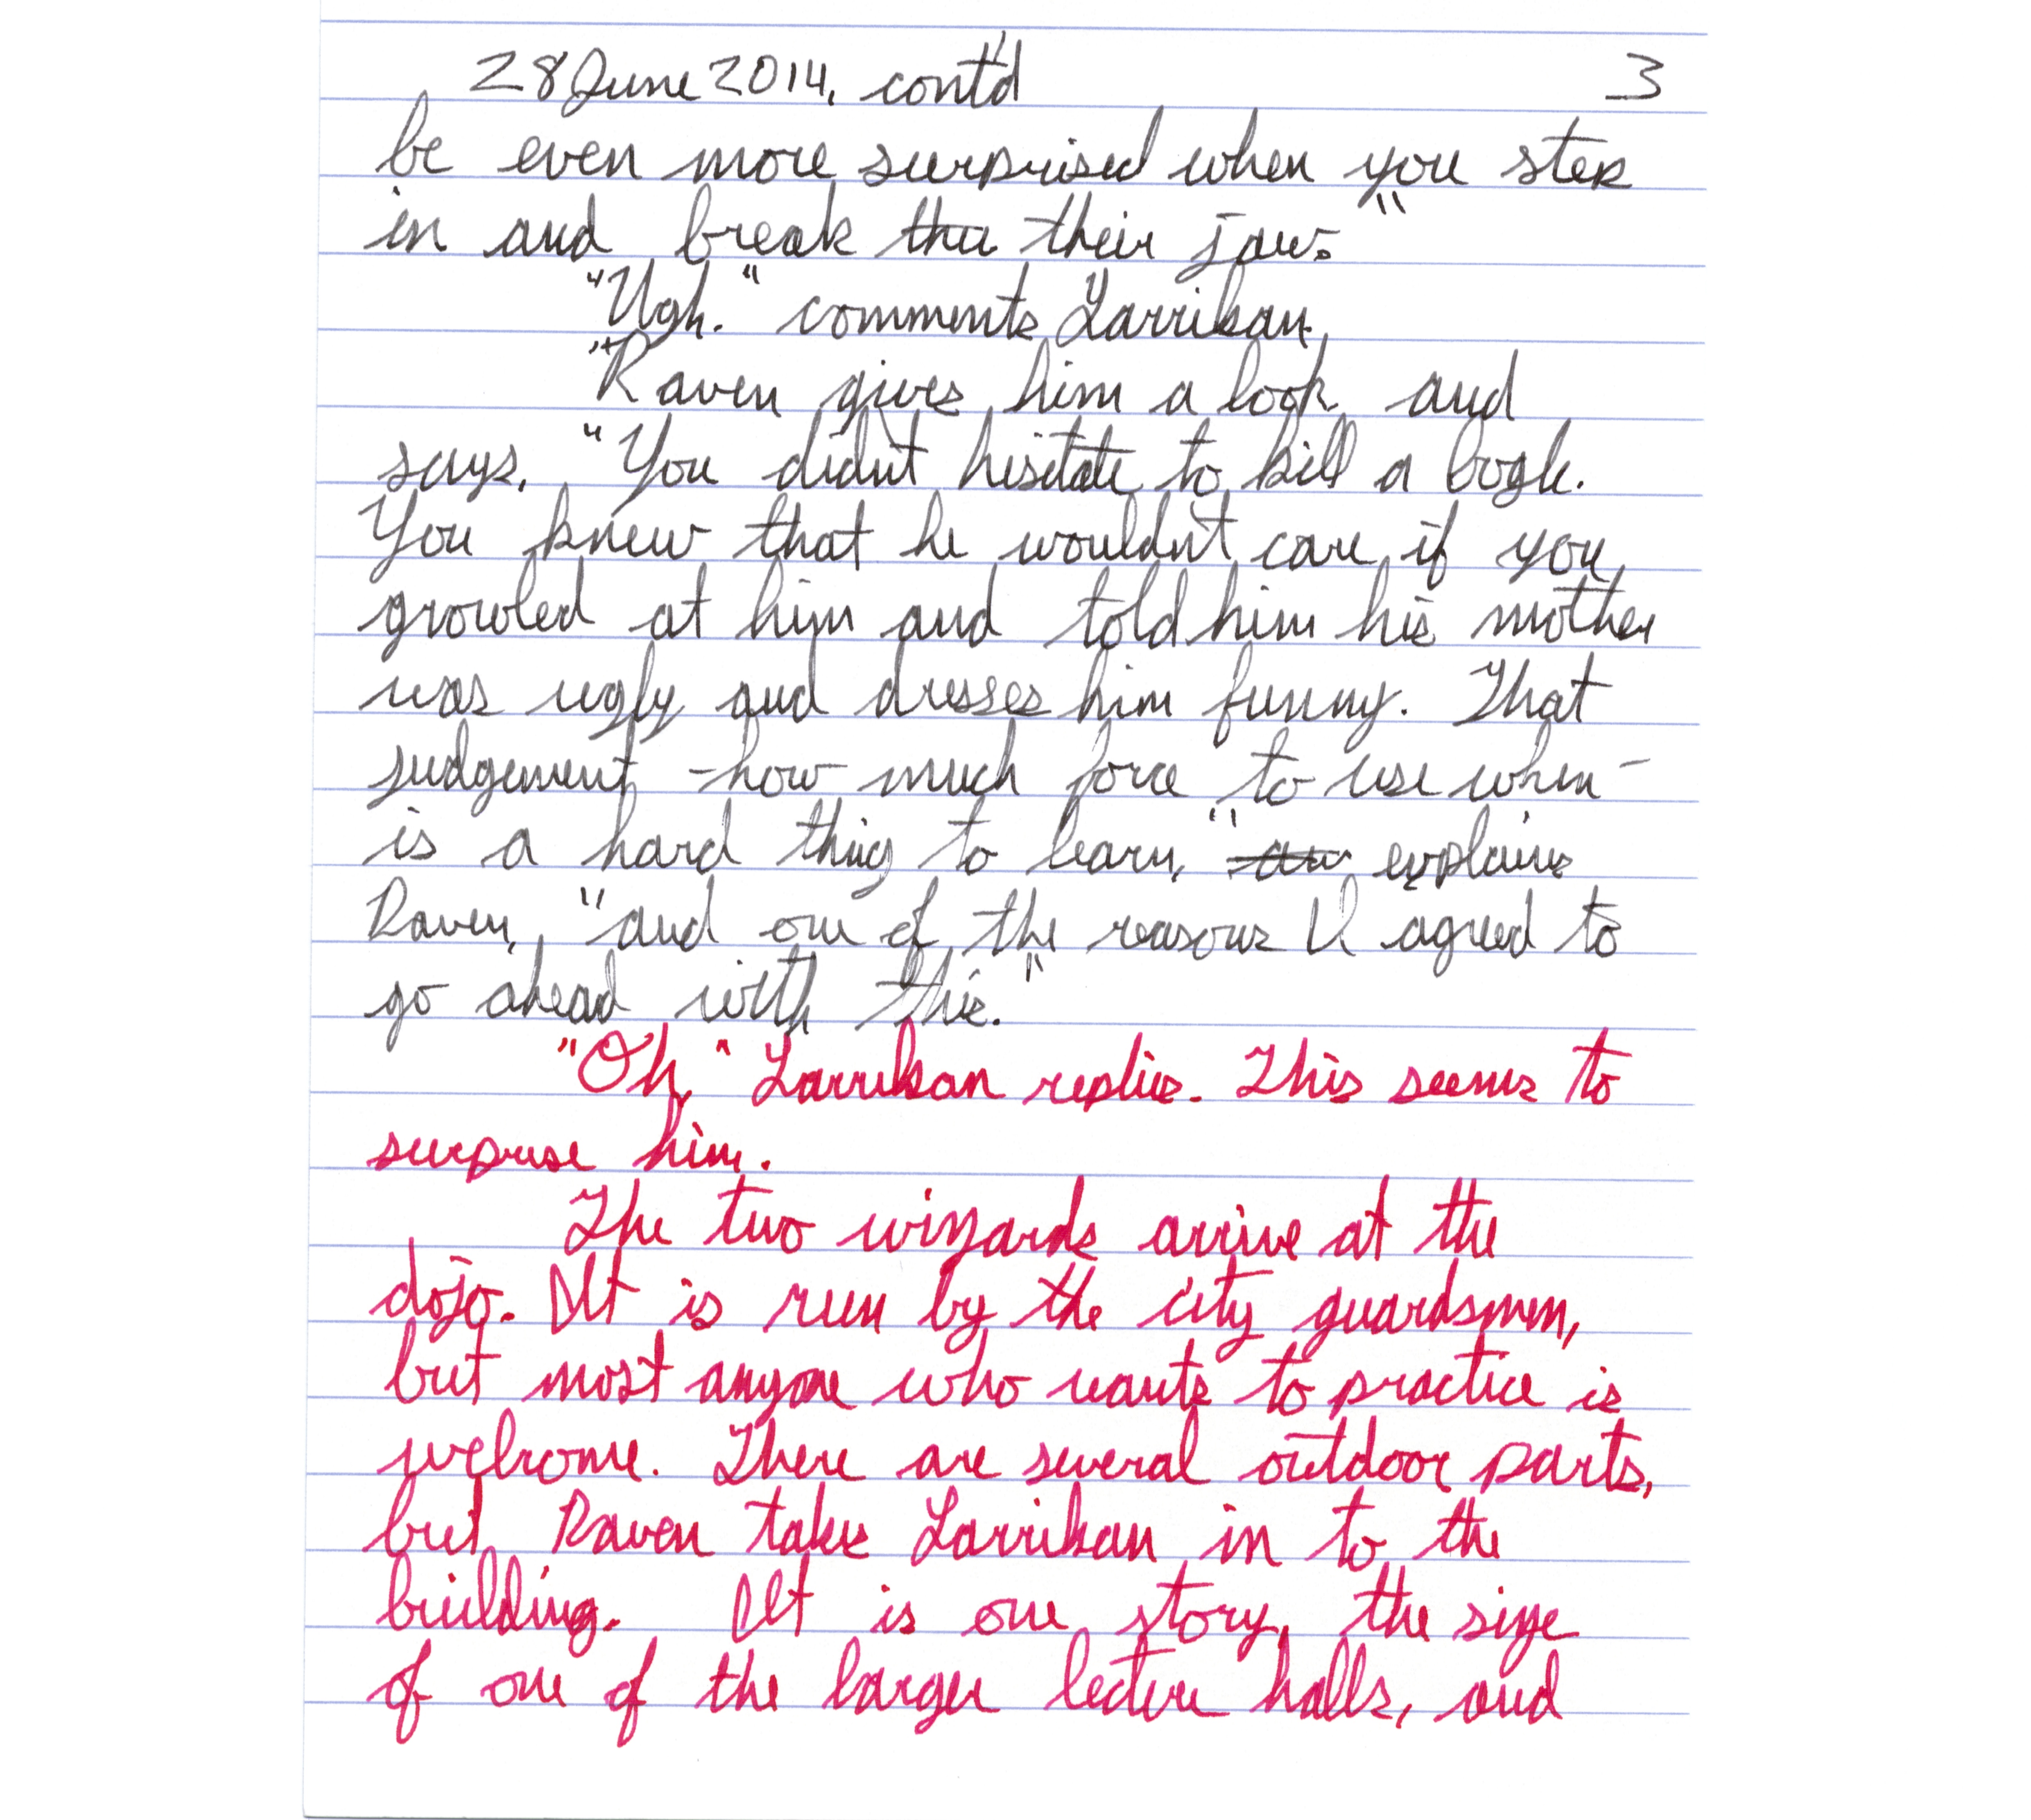 28 June 2014, cont'd 3
be even more surprised when you step
in and break thei their jaw."
"Ugh." comments Larrikan.
"Raven gives him a look and
says, "You didn't hesitate to kill a bogle.
You knew that he wouldn't care if you
growled at him and told him his mother
was ugly and dresses him funny. That
judgement - how much force to use when -
is a hard thing to learn," explains
Raven, "and one of the reasons I agreed to
go ahead with this."
"Oh," Larrikan replies. This seems to
surprise him.
The two wizards arrive at the
dojo. It is run by the city guardsmen,
but most anyone who wants to practice is
welcome. There are several outdoor parts,
but Raven takes Larrikan in to the
building. It is one story, the size
of one of the larger lecture halls, and